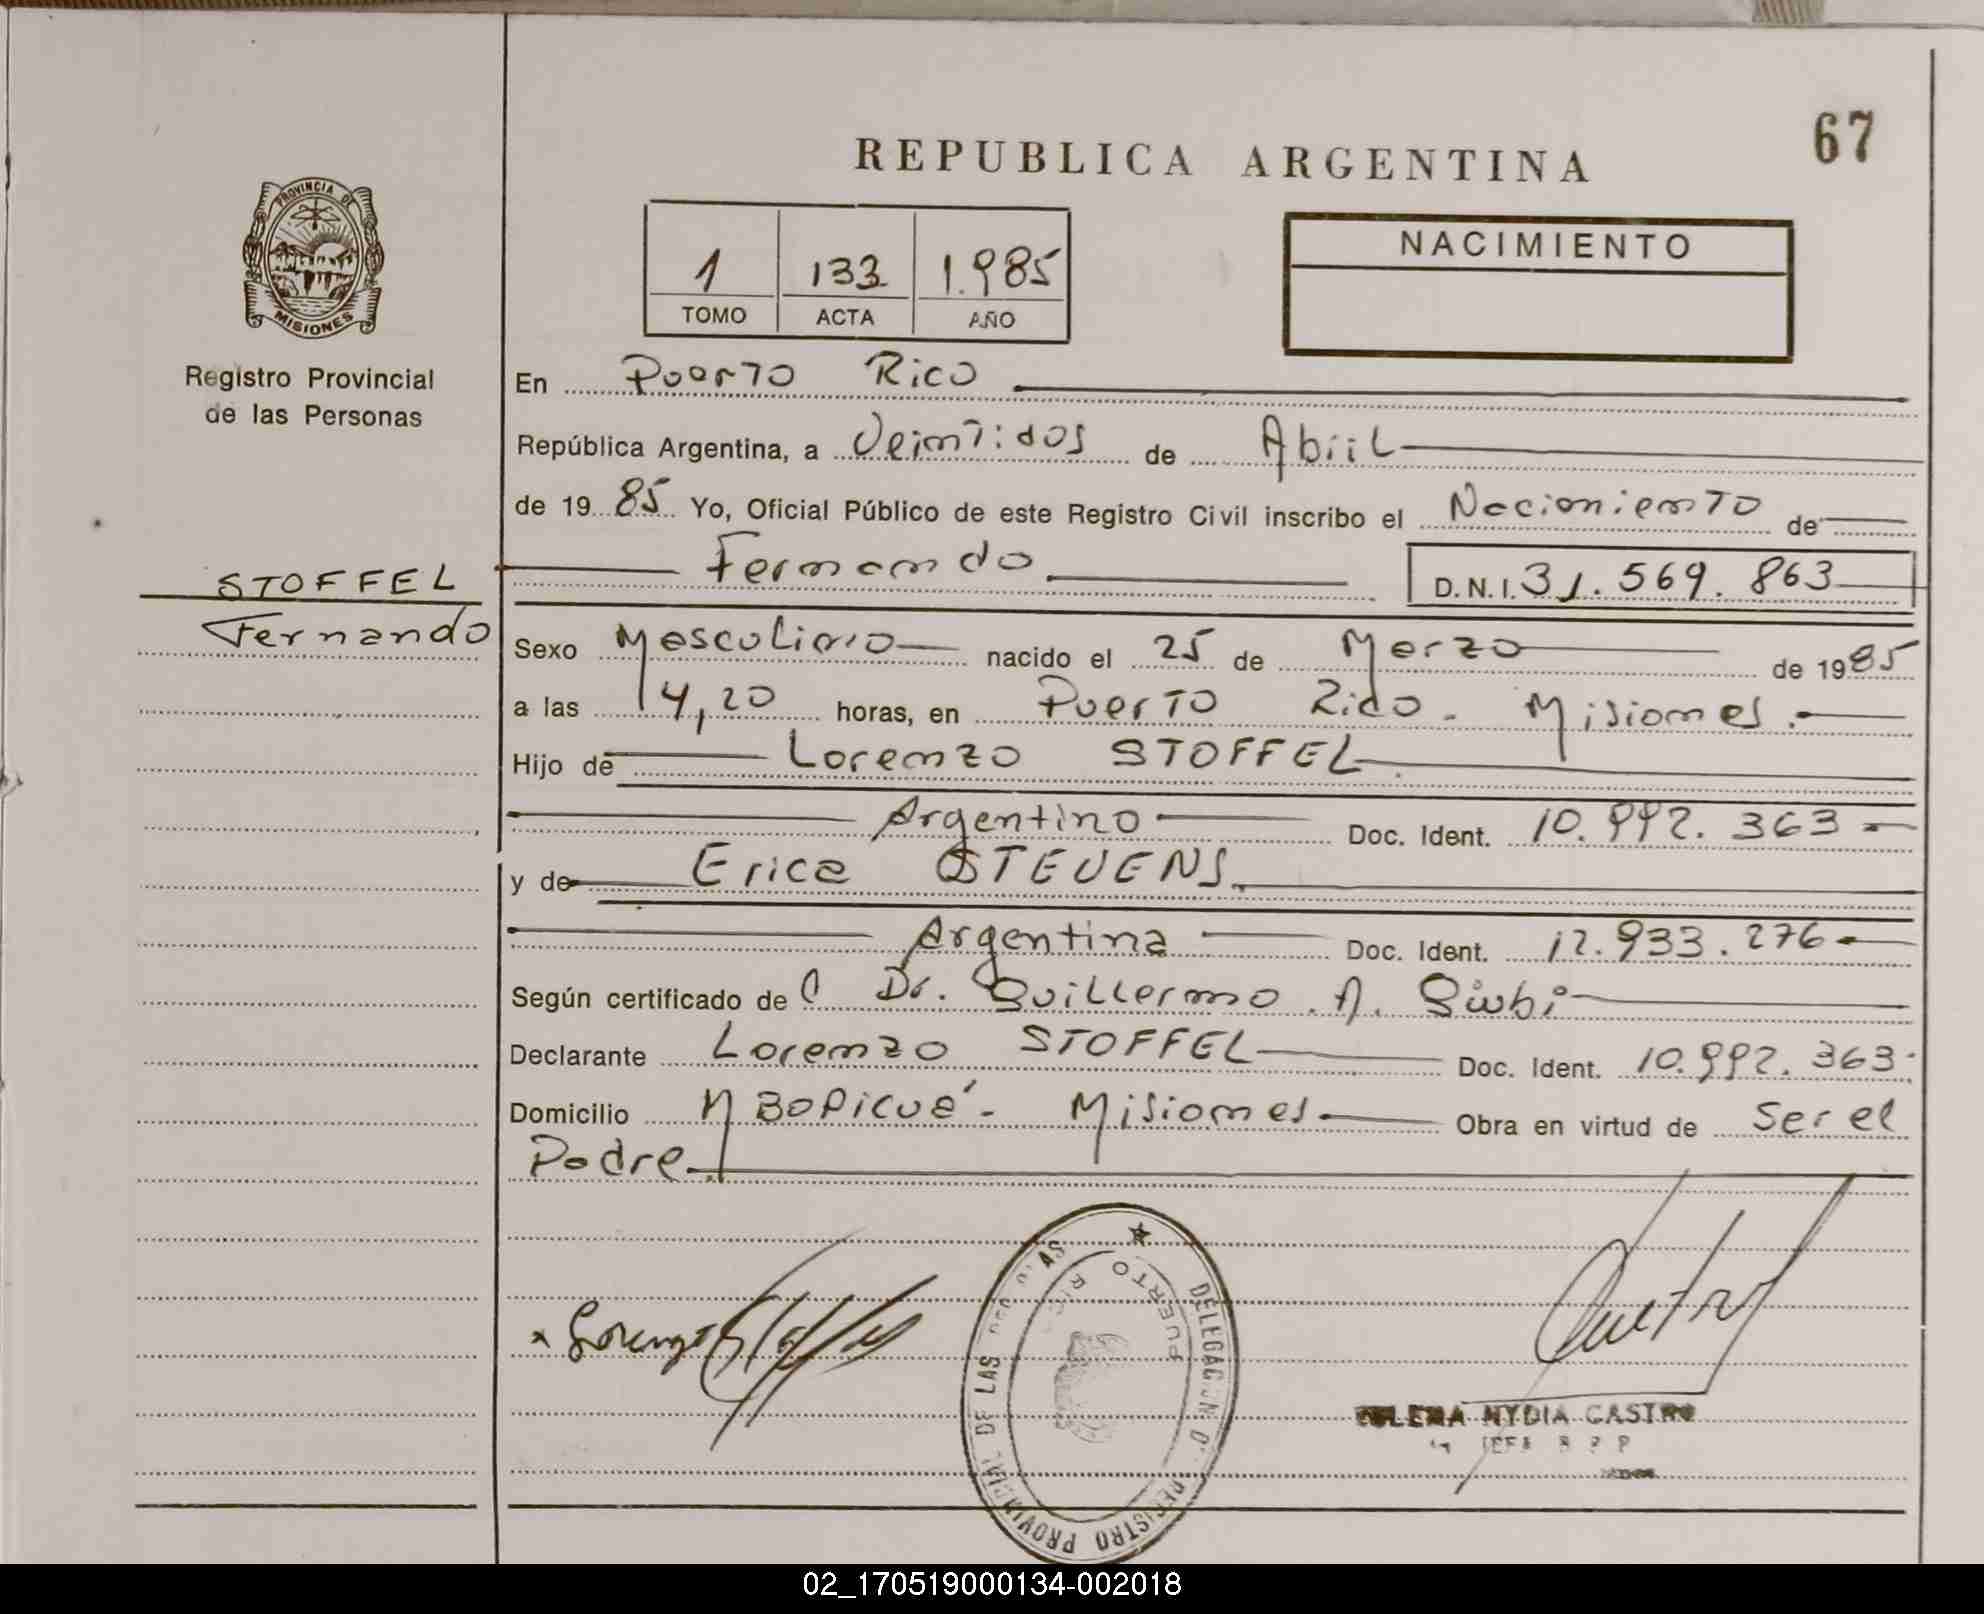 67
REPUBLICA ARGENTINA
PROVINCIA DE
MISIONES
Registro Provincial
de las Personas
1 133 1.985
TOMO ACTA AÑO
NACIMIENTO
En Puerto Rico
República Argentina, a Veintidos de Abril
de 19 85 Yo, Oficial Público de este Registro Civil inscribo el Nacimiento de
Fernando D.N.I. 31.569.863
STOFFEL
Fernando
Sexo Masculino nacido el 25 de Marzo de 19 85
a las 14,20 horas, en Puerto Rico - Misiones.
Hijo de Lorenzo STOFFEL
Argentino Doc. Ident. 10.992.363
y de Erica STEVENS
Argentina Doc. Ident. 12.933.276
Según certificado de Dr. Guillermo A.
Declarante Lorenzo STOFFEL Doc. Ident. 10.992.363
Domicilio MBOPICUÁ - Misiones Obra en virtud de Ser el
Padre.
DELEGACION REGISTRO PROVINCIAL DE LAS
PUERTO RICO
NYDIA CASTRO
02_170519000134-002018